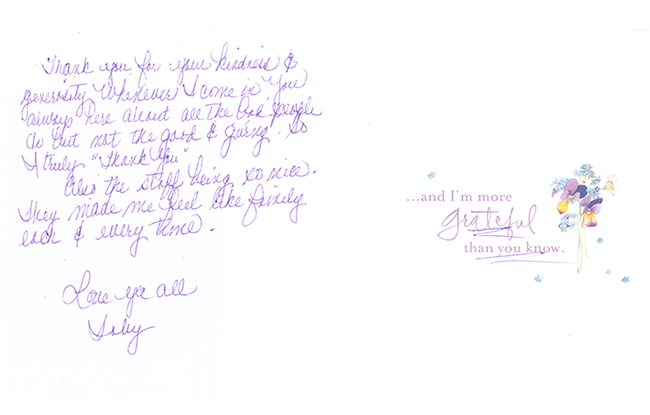 Thank you for your kindness &
generosity. Whenever I come in You
always here about all the bad people
do but not the good & giving. So
I truly "Thank You"
Also the staff being so nice.
They made me feel like family
each & every time.
Love ya all
...and I'm more
grateful
than you know.